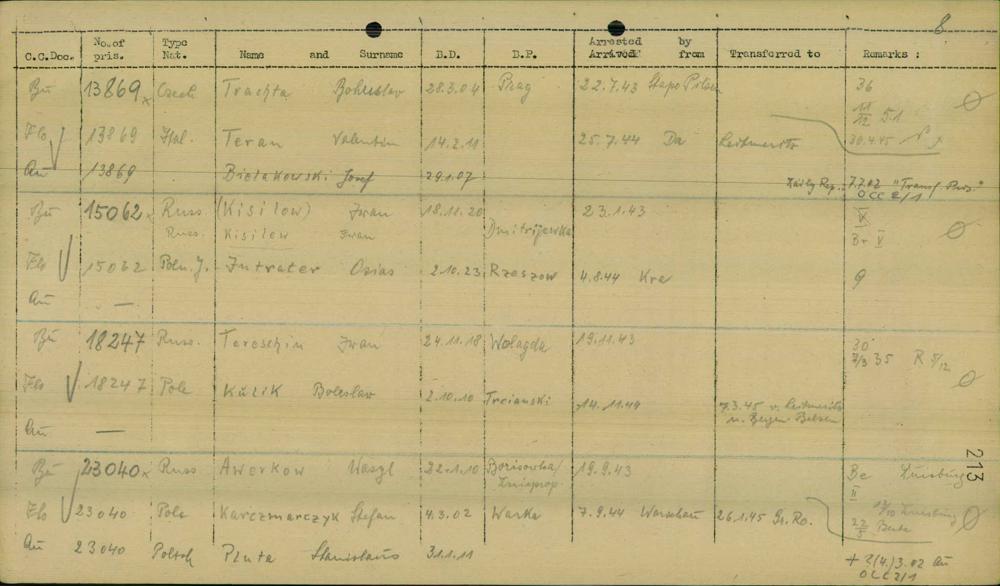 8
C.C.Doc. No.of pris. Type Nat. Name and Surname B.D. B.P. Arrested by Arrived from Transferred to Remarks :
Bu 13869 x Czech Trachta Bohuslav 28.3.04 Prag 22.7.43 Stapo Pilsen 36
Flo 13869 Ital. Teran Valentin 14.2.11 25.7.44 Da Leitmeritz 30.4.45
Au 13869 Bielakowski Josef 29.1.07 Daily Rep. 7.7.02 "Transf. Pris."
OCC 2/1
Bu 15062 x Russ (Kisilow) Iwan 18.11.20 23.1.43 V
Russ. Kisilew Iwan Dmitrijewka Br V
Flo 15062 Poln. J. Intrater Osias 2.10.23 Rzeszow 4.8.44 Kra 9
Au —
Bu 18247 Russ. Tereschin Iwan 24.11.18 Wologda 19.11.43 30
7/3 35 R 5/12
Flo 18247 Pole Kuzik Boleslaw 2.10.10 Troianski 14.11.44 7.3.45 v. Leitmeritz
n. Bergen Belsen
Au —
Bu 23040 x Russ Aworkow Wasyl 22.1.10 Borisowka/ 19.9.43 Be Duisburg
Dnieprop. II
Flo 23040 Pole Karczmarczyk Stefan 4.3.02 Warka 7.9.44 Warschau 26.1.45 Gr. Ro.
Au 23040 Poltsch Pluta Stanislaus 31.1.11 + 2(4.)3.02 Au
OCC 2/1
213